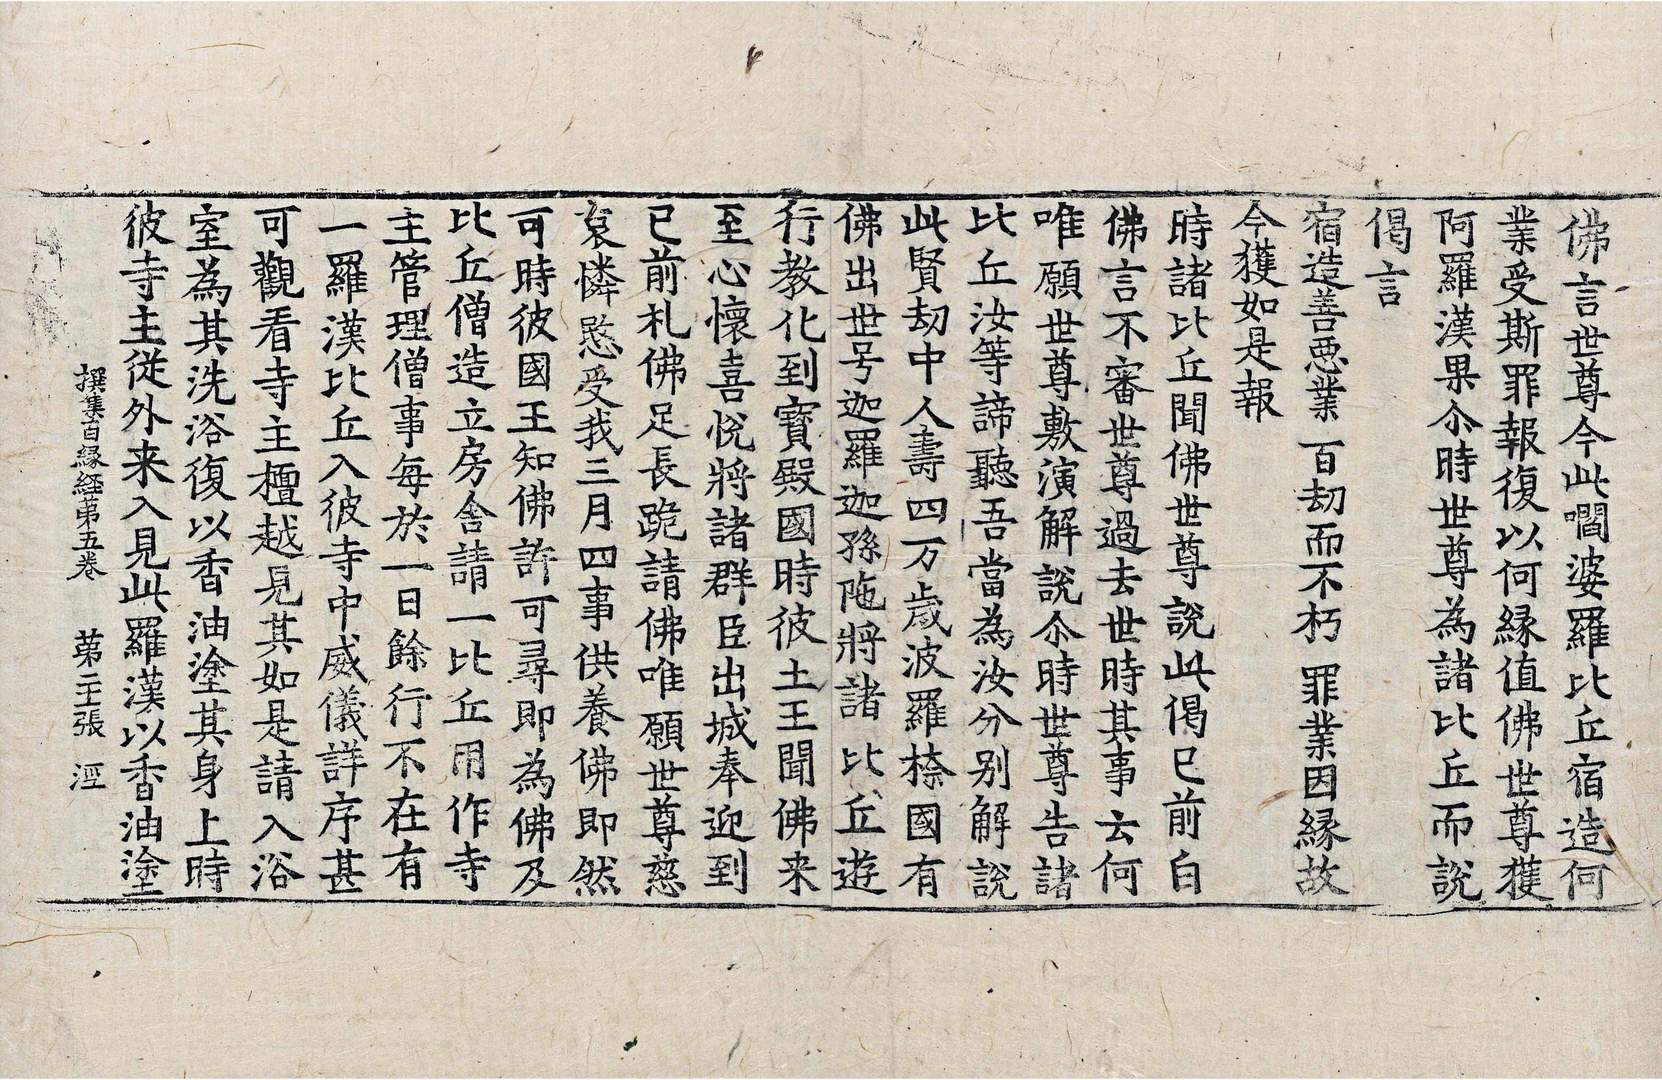 佛言世尊今此嚪婆羅比丘宿造何
業受斯罪報復以何縁值佛世尊獲
阿羅漢果尒時世尊為諸比丘而說
偈言
宿造善悪業 百劫而不朽 罪業因縁故
今獲如是報
時諸比丘聞佛世尊說此偈已前白
佛言不審世尊過去世時其事云何
唯願世尊敷演解說尒時世尊告諸
比丘汝等諦聽吾當為汝分别解說
此賢劫中人壽四万歳波羅㮈國有
佛出世号迦羅迦孫陁將諸比丘遊
行教化到寶殿國時彼土王聞佛来
至心懷喜悦將諸群臣出城奉迎到
已前札佛足長跪請佛唯願世尊慈
哀憐愍受我三月四事供養佛即然
可時彼國王知佛許可尋即為佛及
比丘僧造立房舎請一比丘用作寺
主管理僧事每於一日餘行不在有
一羅漢比丘入彼寺中威儀詳序甚
可觀看寺主檀越見其如是請入浴
室為其洗浴復以香油塗其身上時
彼寺主從外来入見此羅漢以香油塗
撰集百縁経苐五卷 苐二主張 湮